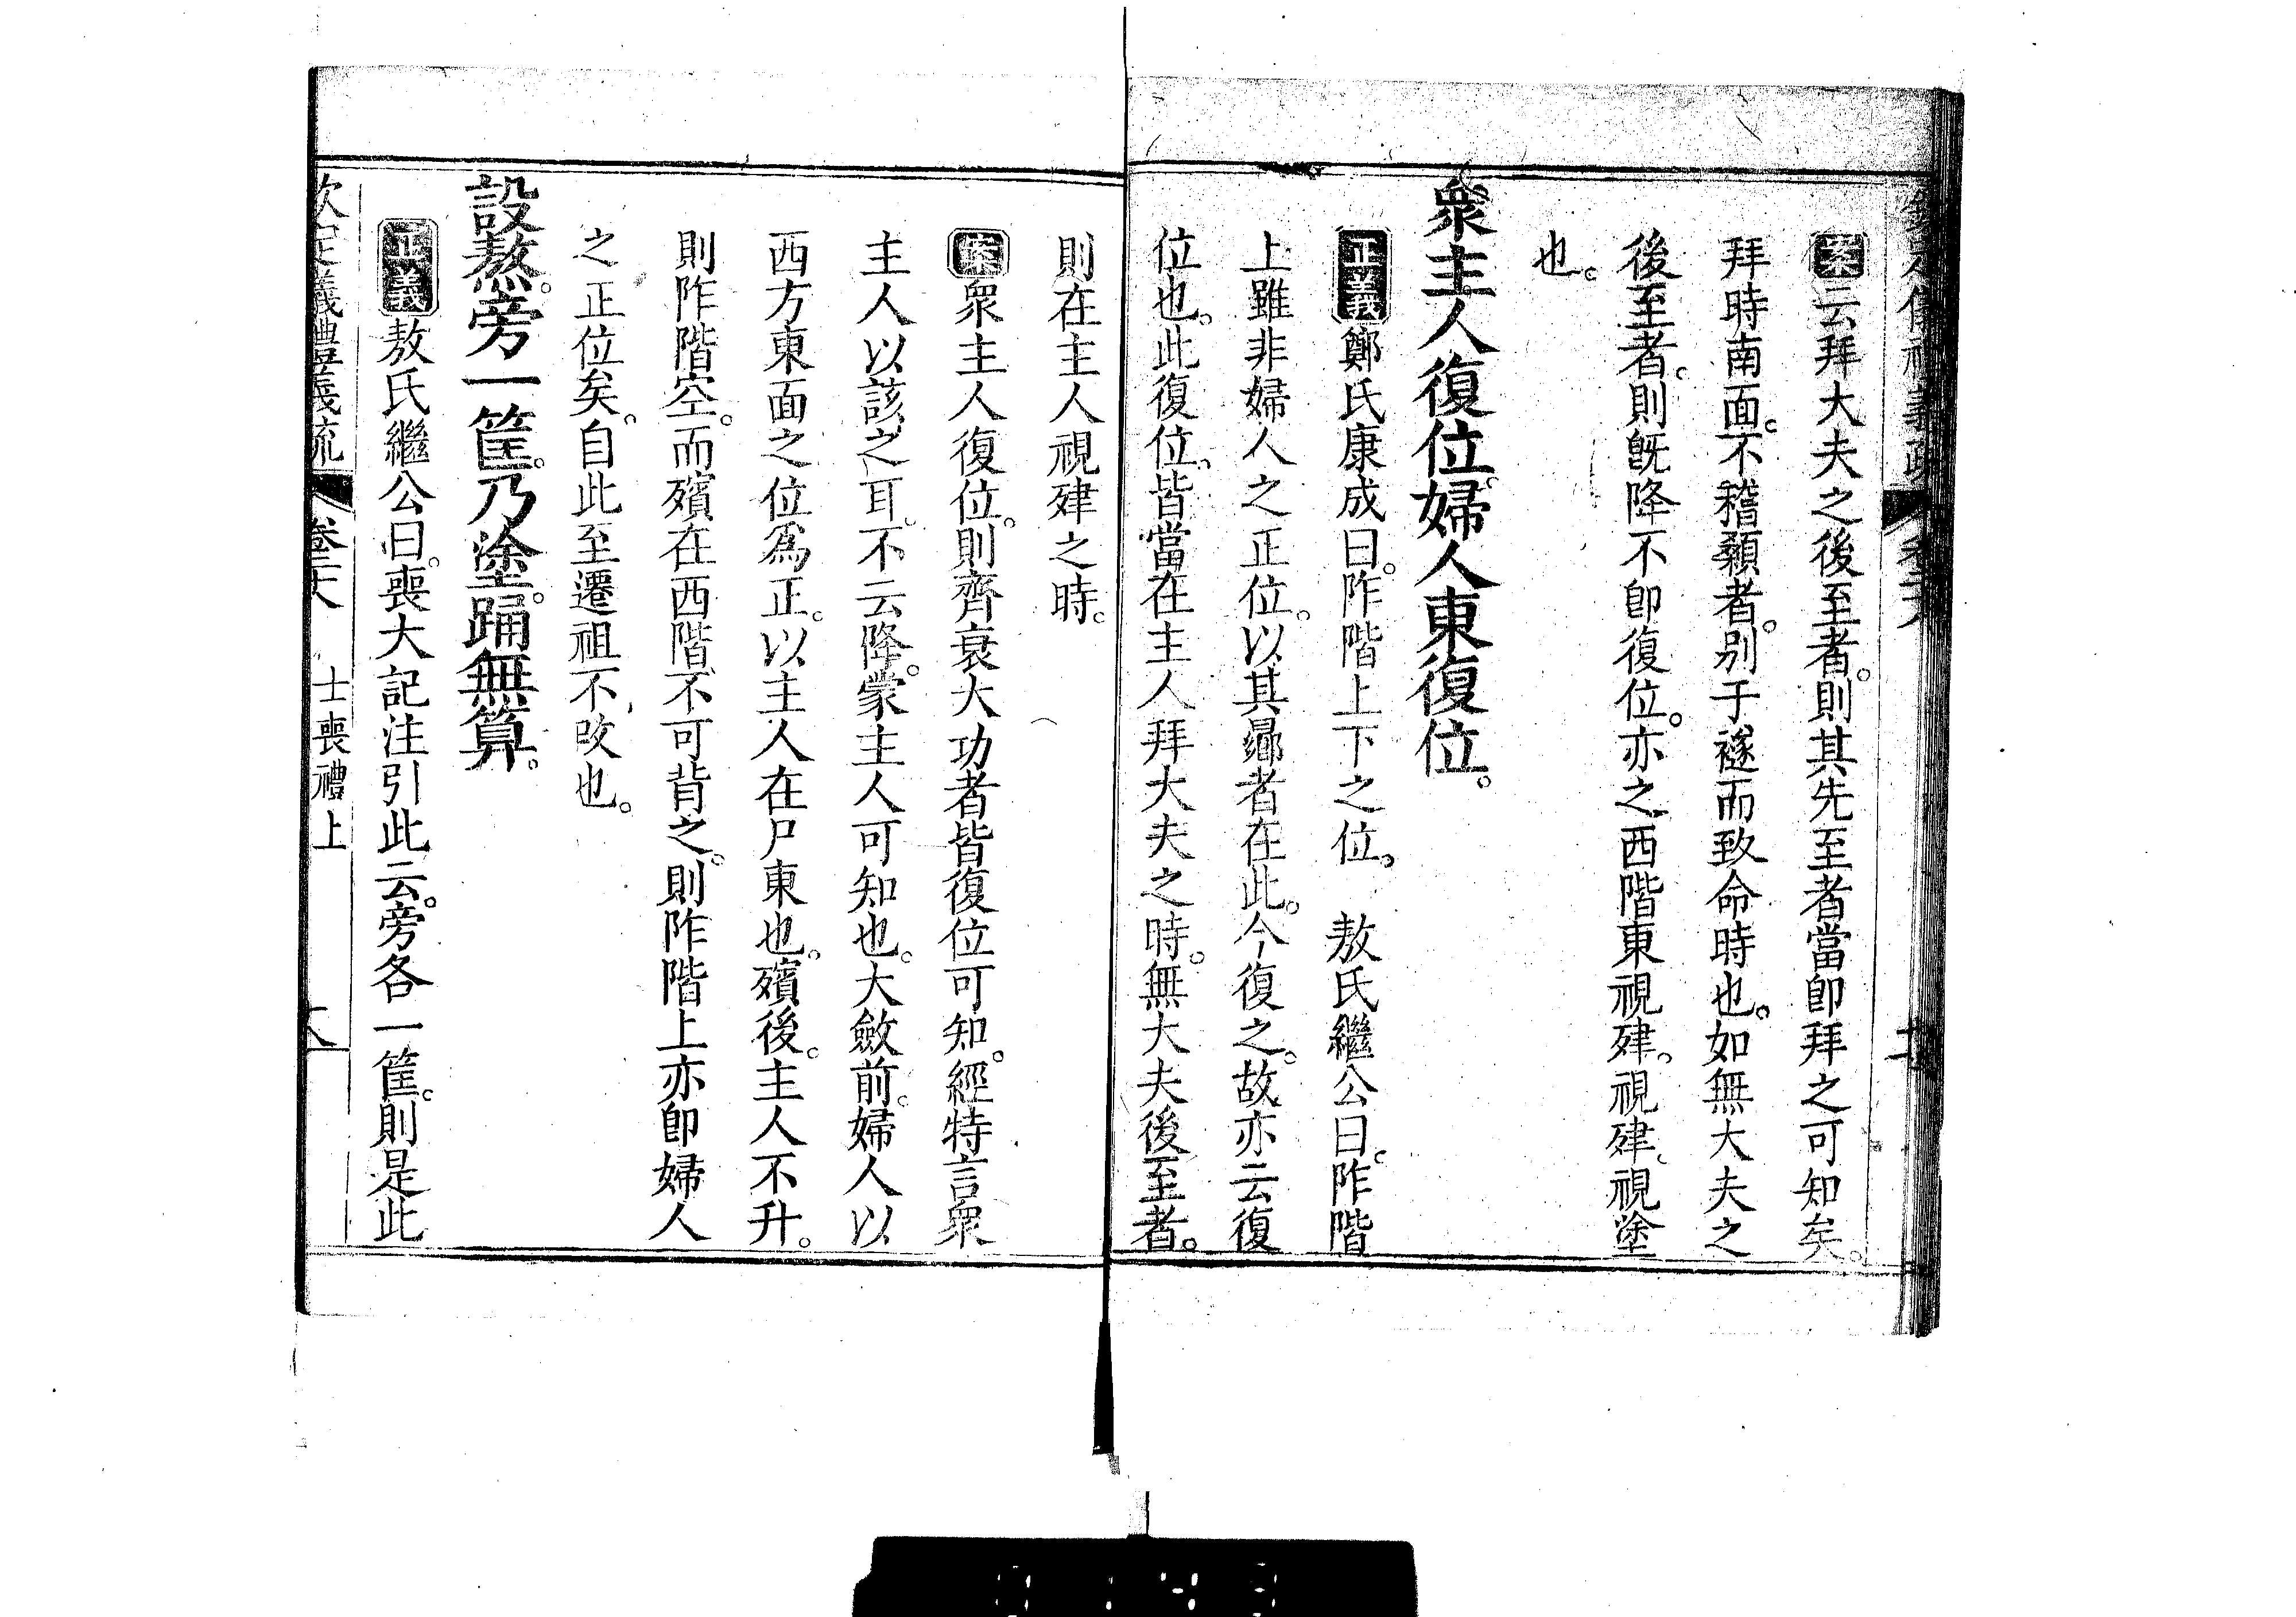 案云拜大夫之後至者。則其先至者當卽拜之可知矣。
拜時南面。不稽顙者。别于襚而致命時也。如無大夫之
後至者。則旣降不卽復位。亦之西階東視肂。視肂。視塗
也。
衆主人復位。婦人東復位。
正義鄭氏康成曰。阼階上下之位。 敖氏繼公曰。阼階
上雖非婦人之正位。以其曏者在此。今復之。故亦云復
位也。此復位。皆當在主人拜大夫之時。無大夫後至者。
則在主人視肂之時。
案衆主人復位。則齊衰大功者皆復位可知。經特言衆
主人以該之耳。不云降。蒙主人可知也。大斂前。婦人以
西方東面之位爲正。以主人在尸東也。殯後。主人不升。
則阼階空。而殯在西階。不可背之。則阼階上亦卽婦人
之正位矣。自此至遷祖不改也。
設熬。旁一筐。乃塗。踊無算。
正義敖氏繼公曰。喪大記注引此云。旁各一筐。則是此
欽定義禮義疏 卷二十八 士喪禮上